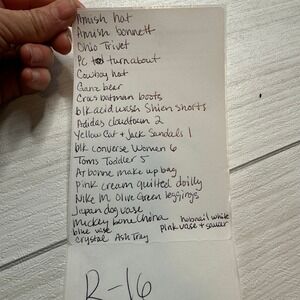 Amish hat
Amish bonnett
Ohio Trivet
PC turnabout
Cowboy hat
Ganz bear
Crocs batman boots
blk acid wash Shien shorts
Adidas cloudfoam 2
Yellow Cat + Jack Sandals 1
blk converse Women 6
Toms Toddler 5
Arbonne make up bag
Pink cream quilted doilly
Nike M Olive Green leggings
Japan dog vase
Mickey bone China hobnail white
blue vase pink vase + saucer
Crystal Ash Tray
R-16